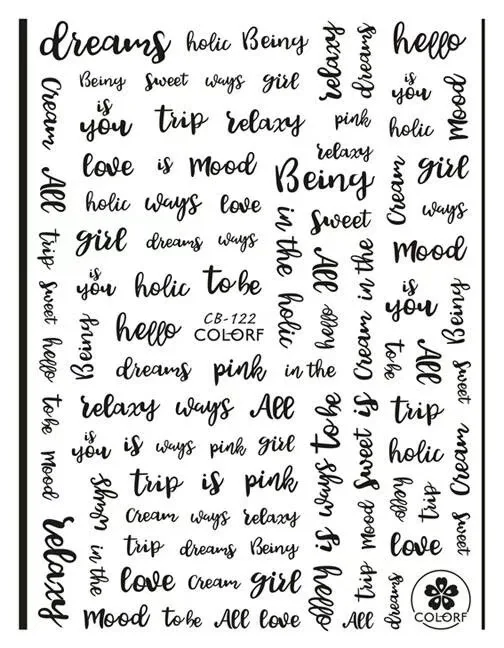 dreams holic Being
relaxy
dreams
hello
Being sweet ways girl
is
you
Mood
Cream
is
you
trip relaxy
pink
holic
relaxy
love is Mood
Being
Cream
girl
All
holic ways love
sweet
ways
trip
girl dreams ways
in the
holic
All
hello
Cream in the
Mood
sweet
is
you
holic to be
is
you
Being
hello
Being
hello
CB-122
COLORF
to be
All
sweet
dreams pink in the
to be
relaxy ways All
hello is ways to be
Sweet is
trip
Mood
is
you
is ways pink girl
holic
Cream
ways
in the
trip is pink
Mood
trip
hello
trip
relaxy
Cream ways relaxy
love
sweet
trip dreams Being
love Cream girl
dreams
Mood to be All love
All
COLORF